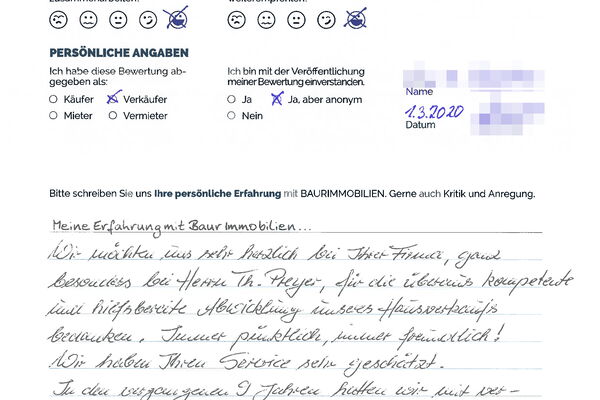 PERSÖNLICHE ANGABEN
Ich habe diese Bewertung ab-
gegeben als:
Käufer Verkäufer
Mieter Vermieter
Ich bin mit der Veröffentlichung
meiner Bewertung einverstanden.
Ja Ja, aber anonym
Nein
Name
1.3.2020
Datum
Bitte schreiben Sie uns Ihre persönliche Erfahrung mit BAURIMMOBILIEN. Gerne auch Kritik und Anregung.
Meine Erfahrung mit Baur Immobilien...
Wir möchten uns sehr herzlich bei Ihrer Firma, ganz
besonders bei Herrn Th. Preyer, für die überaus kompetente
und hilfsbereite Abwicklung unseres Hausverkaufs
bedanken. Immer pünktlich, immer freundlich!
Wir haben Ihren Service sehr geschätzt.
In den vergangenen 9 Jahren hatten wir mit ver-